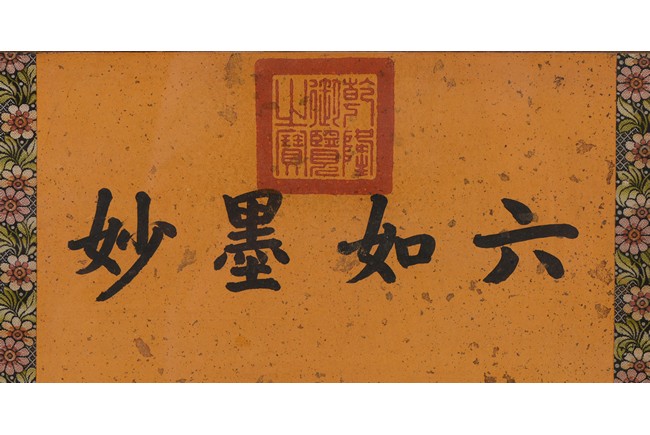 乾隆御覽之寶
六如墨妙